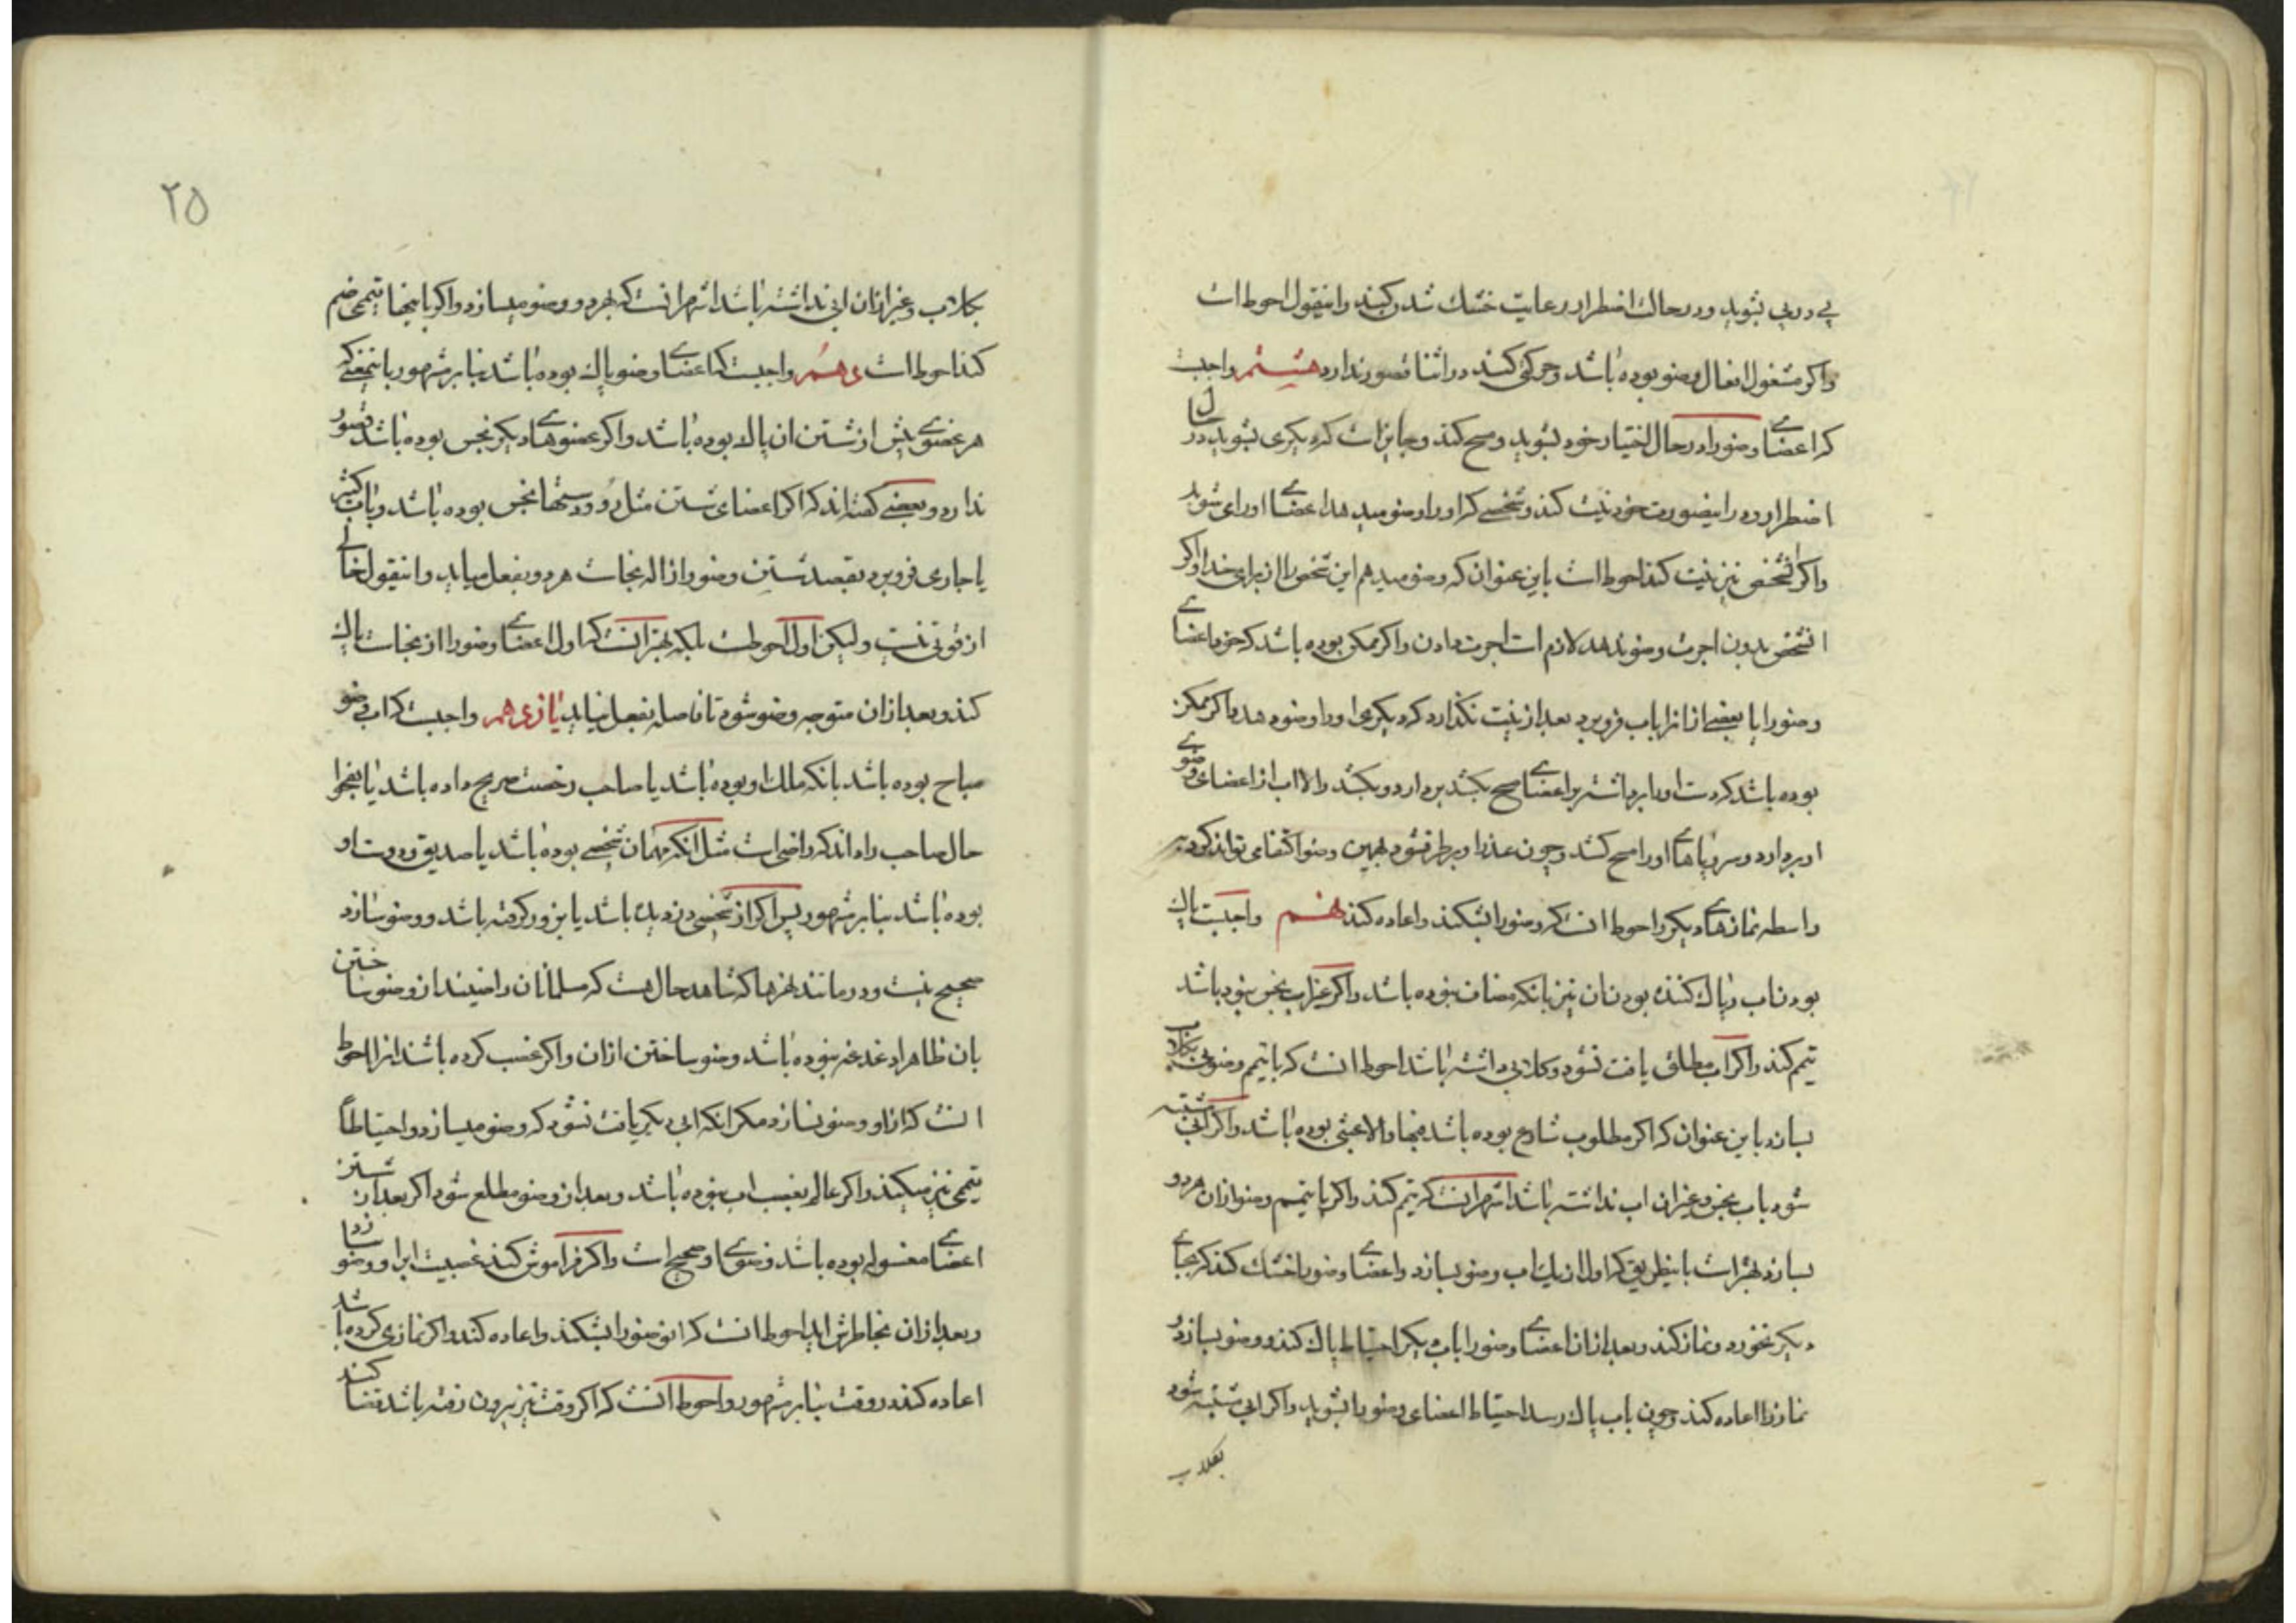 پی در پی بشوید و در حال اضطرار رعایت خشک شدن بکند و اینقول احوط است
واکر مشغول افعال وضو بوده باشد و حرکتی کند در اثنا قصور ندارد هشتم واجبست
که اعضای وضو را در حال اختیار خود بشوید و مسح کند و جایز است که دیکری بشوید در حال
اضطرار و در اینصورت خود نیت کند و شخصی که او را وضو میدهد اعضای او را می شوید
واکر انشخص نیز نیت کند احوط است باین عنوان که وضو میدهم این شخص را از برای خدا واکر
انشخص بدون اجرت وضو ندهد لازم است اجرت دادن واکر ممکن بوده باشد که خود اعضای
وضو را یا بعضی از انرا باب فرو برد بعد از نیت نکذارد که دیکری او را وضو دهد واکر ممکن
بوده باشد که دست او را برداشته بر اعضای مسح بکشد بردارد و بکشد والا اب از اعضای وضوی
او بردارد و سر و پاهای او را مسح کشد و چون عذر او برطرف شود بهمین وضو اکتفا می تواند کرد
واسطه نمازهای دیکر و احوط انست که وضو را بشکند و اعاده کند نهم واجبست پاک
بودن اب و پاک کننده بودن ان نیز بانکه مضاف نبوده باشد واکر غیر اب نجس نبوده باشد
تیمم کند واکر اب مطلق یافت نشود و کلابی داشته باشد احوط انست که با تیمم وضوی بکلاب
بسازد باین عنوان که اکر مطلوب شارع بوده باشد فبها والا عبثی بوده باشد واکر ابی مشتبه
شود باب نجس و غیر ان اب نداشته باشد اشهر انست که تیمم کند واکر با تیمم وضو از ان هر دو
بسازد بهتر است باینطریق که اول از یک اب وضو بسازد و اعضای وضو را خشک کند که بجای
دیکر نخورد و نماز کند و بعد از ان اعضای وضو را باب دیکر احتیاط پاک کند و وضو بسازد و
نماز را اعاده کند و چون باب پاک رسد احتیاط اعضای وضو را بشوید واکر ابی مشتبه شود
بکلاب
۲۵
بکلاب و غیر از ان ابی نداشته باشد اشهر انست که بهر دو وضو میسازد واکر با اینها تیممی ضم
کند احوط است دهم واجبست که اعضای وضو پاک بوده باشد بنابر مشهور باینمعنی که
هر عضوی پیش از شستن ان پاک بوده باشد واکر عضوهای دیکر نجس بوده باشد قصور
ندارد و بعضی کفته اند که اکر اعضای شستن مثل رو و دستها نجس بوده باشد و باب کثیر
یا جاری فرو برد بقصد شستن وضو و ازاله نجاست هر دو بفعل میاید و اینقول خالی
از قوتی نیست و لیکن اول احوطست بلکه بهتر انست که اول اعضای وضو را از نجاست پاک
کند و بعد از ان متوجه وضو شود تا فاصله بفعل نیاید یازدهم واجبست که اب وضو
مباح بوده باشد بانکه ملک او بوده باشد یا صاحب رخصت صریح داده باشد یا بفحوا
حال صاحب راه داند که راضی است مثل انکه مهمان شخصی بوده باشد یا صدیق و دوست او
بوده باشد بنابر مشهور پس اکر از شخصی دزدیده باشد یا بزور کرفته باشد و وضو سازد
صحیح نیست و در مانند نهرها که شاهد حال هست که مسلمانان راضیند از وضو ساختن
بان ظاهرا دغدغه نبوده باشد وضو ساختن ازان واکر غصب کرده باشد انرا احوط
انست که از او وضو نسازد مکر انکه ابی دیکر یافت نشود که وضو میسازد و احتیاطاً
تیممی نیز میکند واکر عالم بغصب اب نبوده باشد و بعد از وضو مطلع شود اکر بعد از شستن
اعضای مغسوله بوده باشد وضوی او صحیح است واکر فراموش کند غصبیت اب را و وضو سازد
و بعد از ان بخاطرش اید احوط انست که انوضو را بشکند و اعاده کند واکر نمازی کرده باشد
اعاده کند در وقت بنابر مشهور و احوط انست که اکر وقت نیز بیرون رفته باشد قضا کند